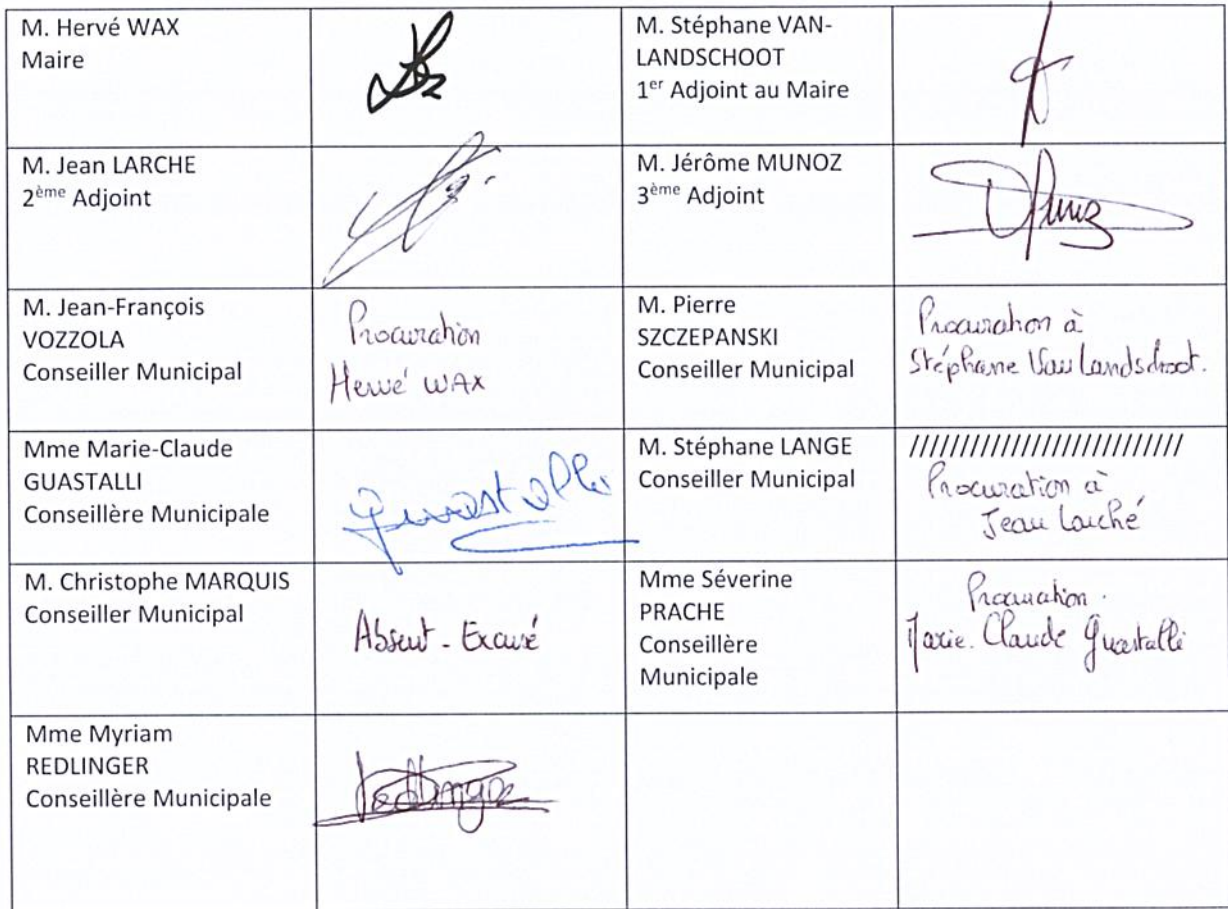 M. Hervé WAX
Maire
M. Stéphane VAN-
LANDSCHOOT
1er Adjoint au Maire
M. Jean LARCHE
2ème Adjoint
M. Jérôme MUNOZ
3ème Adjoint
M. Jean-François
VOZZOLA
Conseiller Municipal
Procuration
Hervé WAX
M. Pierre
SZCZEPANSKI
Conseiller Municipal
Procuration à
Stéphane Van Landschoot.
Mme Marie-Claude
GUASTALLI
Conseillère Municipale
Guastalli
M. Stéphane LANGE
Conseiller Municipal
//////////////////////////
Procuration à
Jean Larché
M. Christophe MARQUIS
Conseiller Municipal
Absent - Excusé
Mme Séverine
PRACHE
Conseillère
Municipale
Procuration.
Marie-Claude Guastalli
Mme Myriam
REDLINGER
Conseillère Municipale